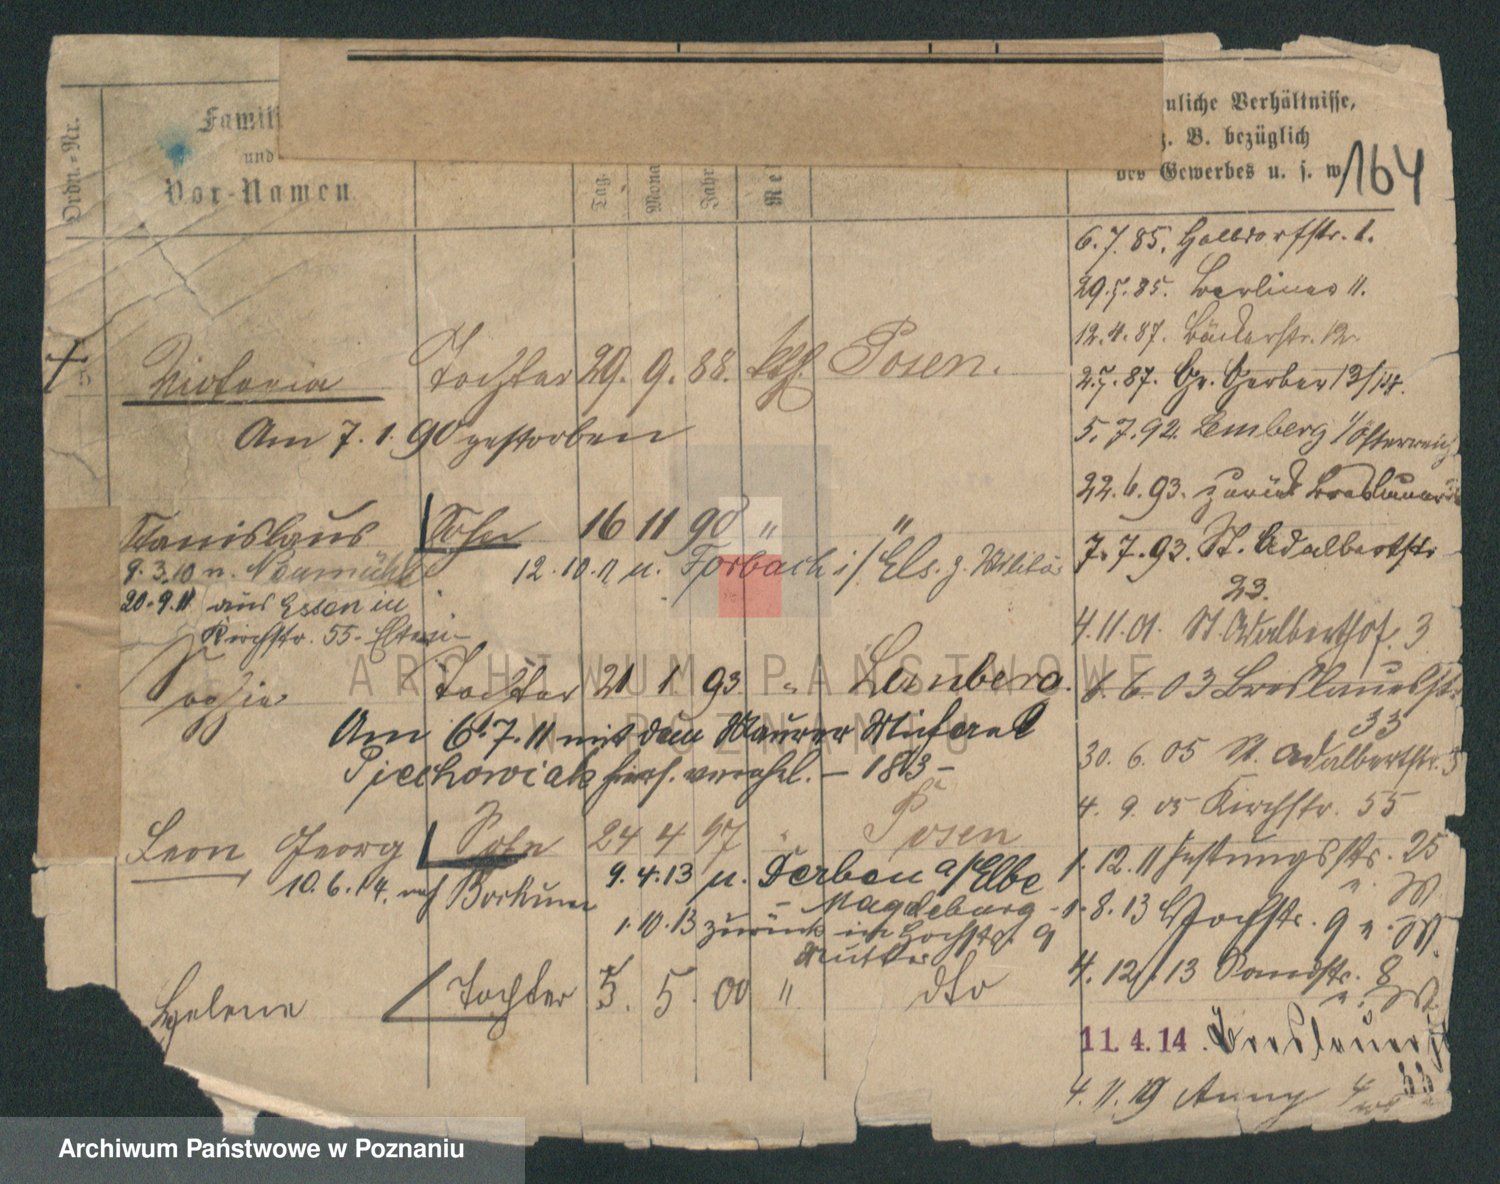 Ordn.-Nr.
Famili
und
Vor-Namen
Tag.
Mona
Jahr
Re
nliche Verhältnisse,
z. B. bezüglich
des Gewerbes u. s. w.
164
5 Victoria Tochter 29. 9. 88. kth. Posen.
Am 7. 1. 90 gestorben
Stanislaus Sohn 16 11 90 " "
9. 3. 10 n. Neumühl
12. 10. 11 n. Forbach i/ Els. z. Militär
20. 9. 11 aus Essen in
Kirchstr. 55
Sophie Tochter 21 1 93 " Lemberg.
Am 6. 7. 11 mit dem Maurer Michael
Piechowiak hies. verehel. – 1813 –
Leon Georg Sohn 24 4 97 " Posen
10. 6. 14. nach Borkum
9. 4. 13 n. Derben a/Elbe
– Magdeburg –
1. 10. 13 zurück in Hochstr. 9
Mutter
Helene Tochter 5. 5. 00 " dto
6. 7. 85. Halbdorfstr. 1.
29. 5. 85. Berliner 11.
12. 4. 87. Bäckerstr. 12.
2. 5. 87. Gr. Gerber 13/14.
5. 7. 92. Lemberg i/Österreich
22. 6. 93. zurück Breslauer
7. 7. 93. St. Adalbertstr.
23.
4. 11. 01. St. Adalberthof. 3
6. 03 Breslauerstr.
33
30. 6. 05 St. Adalbertstr. 3
4. 9. 05 Kirchstr. 55
1. 12. 11 Festungsstr. 25
1. 8. 13 Hochstr. 9
4. 12. 13 Sandstr. 8
11.4.14 Breslauerstr
33
4. 11. 19
ARCHIWUM PAŃSTWOWE
W POZNANIU
Archiwum Państwowe w Poznaniu